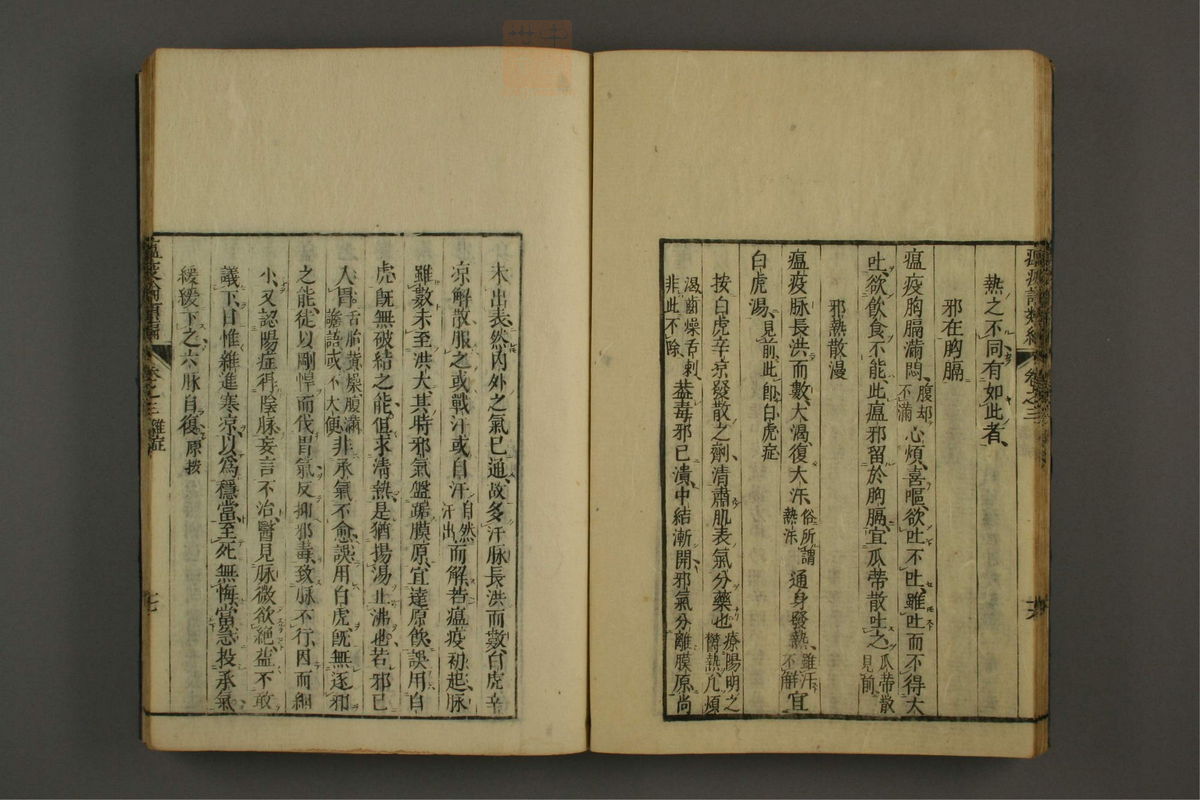 瘟疫論類編 卷之三
熱之不同有如此者
邪在胸膈
瘟疫胸膈滿悶腹却不滿心煩喜嘔欲吐不吐雖吐而不得大
吐欲飲食不能此瘟邪留於胸膈宜瓜蒂散吐之瓜蒂散見前
邪熱散漫
瘟疫脉長洪而數大渴復大汗俗所謂熱汗通身發熱雖汗不解宜
白虎湯見前此即白虎症
按白虎辛凉發散之劑清肅肌表氣分藥也療陽明之欝熱凡煩
渴齒燥舌刺非此不除葢毒邪已潰中結漸開邪氣分離膜原尚
未出表然內外之氣已通故多汗脉長洪而數白虎辛
凉解散服之或戰汗或自汗自然汗出而解若瘟疫初起脉
雖數未至洪大其時邪氣盤踞膜原宜達原飲誤用白
虎旣無破結之能但求淸熱是猶揚湯止沸也若邪已
入胃舌胎黄燥腹滿譫語或不大便非承氣不愈誤用白虎旣無逐邪
之能徒以剛悍而伐胃氣反抑邪毒致脉不行因而細
小又認陽症得陰脉妄言不治醫見脉微欲絶益不敢
議下日惟雜進寒凉以爲穩當至死無悔當急投承氣
緩緩下之六脉自復原按
瘟疫論類編 卷之三 雜症 十七